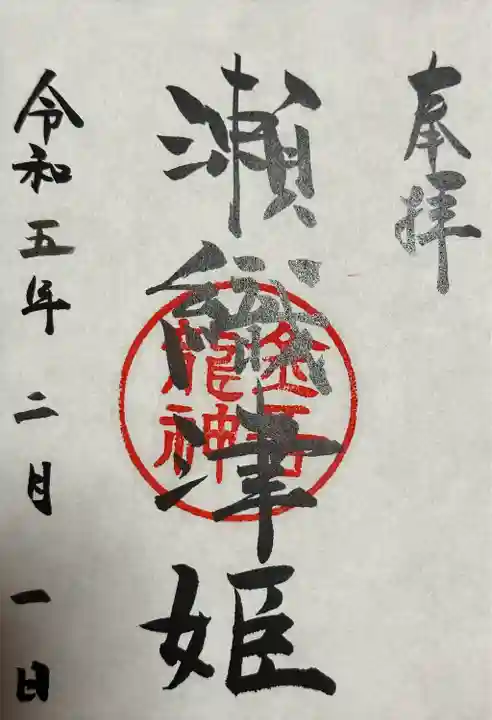 奉拝
瀬織津姫
金吾龍神
令和五年二月一日